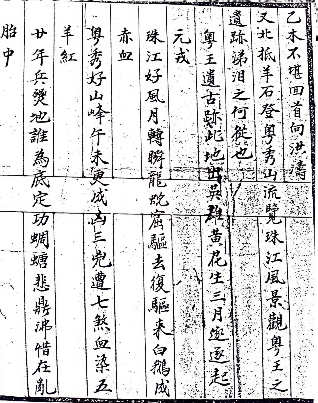 乙未不堪回首向洪濤
又北抵羊石登粵秀山流覽珠江風景觀粵王之
遺跡涕泪之何從也
粵王遺古跡此地出吳雖黃花生三月逐逐起
元戎
珠江好風月轉瞬龍蛇窟驅去復驅來白鵝成
赤血
粵秀好山峰午未更成凶三兇遭七煞血染五
羊紅
廿年兵燹地誰為底定功蜩螗悲鼎沸惜在亂
胎中